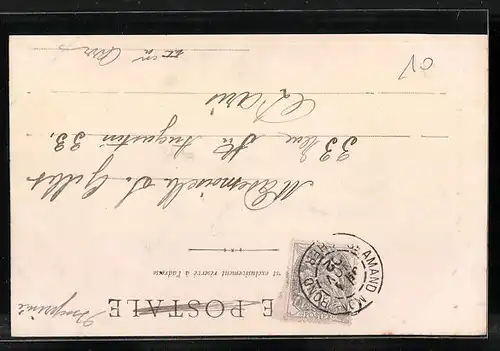 Imprimé
E POSTALE
nt exclusivement réservé à l'adresse
ST AMAND MONT ROND
CHER
Mademoiselle S. Gilles
33 Rue St Augustin 33.
Paris
CV